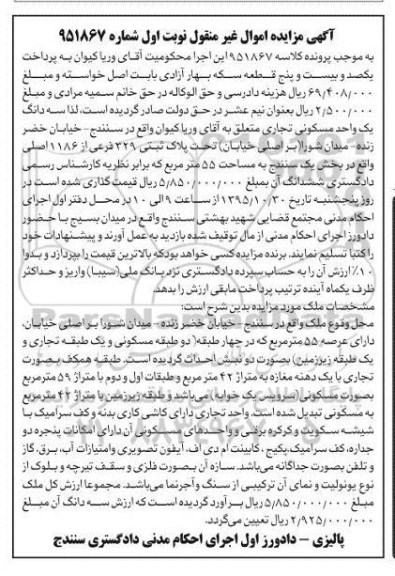 آگهی مزایده اموال غیر منقول نوبت اول شماره ۹۵۱۸۶۷
به موجب پرونده کلاسه ۹۵۱۸۶۷ این اجرا محکومیت آقای وریا کیوان به پرداخت
یکصد و بیست و پنج قطعه سکه بهار آزادی بابت اصل خواسته و مبلغ
۶۹/۴۰۸/۰۰۰ ریال هزینه دادرسی و حق الوکاله در حق خانم سمیه مرادی و مبلغ
۲/۵۰۰/۰۰۰ ریال بعنوان نیم عشر در حق دولت صادر گردیده است، لذا سه دانگ
یک واحد مسکونی تجاری متعلق به آقای وریا کیوان واقع در سنندج - خیابان خضر
زنده - میدان شورا(بر اصلی خیابان) تحت پلاک ثبتی ۳۲۹ فرعی از ۱۱۸۶ اصلی
واقع در بخش یک سنندج به مساحت ۵۵ متر مربع که برابر نظریه کارشناس رسمی
دادگستری ششدانگ آن بمبلغ ۵/۸۵۰/۰۰۰/۰۰۰ ریال قیمت گذاری شده است در
روز پنجشنبه تاریخ ۱۳۹۵/۱۰/۳۰ از ساعت ۹ الی ۱۰ در محل دفتر اول اجرای
احکام مدنی مجتمع قضایی شهید بهشتی سنندج واقع در میدان بسیج با حضور
دادورز اجرای احکام مدنی از مال توقیف شده بازدید به عمل آورند و پیشنهادات خود
را کتبا تسلیم نمایند. برنده مزایده کسی خواهد بود که بالاترین قیمت را بپردازد و بدوا
۱۰٪ ارزش آن را به حساب سپرده دادگستری نزد بانک ملی(سیبا) واریز و حداکثر
ظرف یکماه آینده ترتیب پرداخت مابقی ارزش را بدهد.
مشخصات ملک مورد مزایده بدین شرح است:
محل وقوع ملک واقع در سنندج - خیابان خضر زنده - میدان شورا بر اصلی خیابان.
دارای عرصه ۵۵ مترمربع که در چهار طبقه( دو طبقه مسکونی و یک طبقه تجاری و
یک طبقه زیرزمین) بصورت دو نبش احداث گردیده است. طبقه همکف بصورت
تجاری با یک دهنه مغازه به متراژ ۴۲ متر مربع و طبقات اول و دوم با متراژ ۵۹ مترمربع
بصورت مسکونی(سرویس یک خوابه) می‌باشد و طبقه زیرزمین با متراژ ۴۲ مترمربع
به مسکونی تبدیل شده است. واحد تجاری دارای کاشی کاری بدنه و کف سرامیک با
شیشه سکوریت و کرکره برقی و واحدهای مسکونی آن دارای امکانات پنجره دو
جداره، کف سرامیک، پکیج، کابینت ام دی اف، آیفون تصویری و امتیازات آب، برق، گاز
و تلفن بصورت جداگانه می‌باشد. سازه آن بصورت فلزی و سقف تیرچه و بلوک از
نوع یونولیت و نمای آن ترکیبی از سنگ و آجرنما می‌باشد. مجموعا ارزش کل ملک
مبلغ ۵/۸۵۰/۰۰۰/۰۰۰ ریال برآورد گردیده است که ارزش سه دانگ آن مبلغ
۲/۹۲۵/۰۰۰/۰۰۰ ریال تعیین می‌گردد.
پالیزی - دادورز اول اجرای احکام مدنی دادگستری سنندج